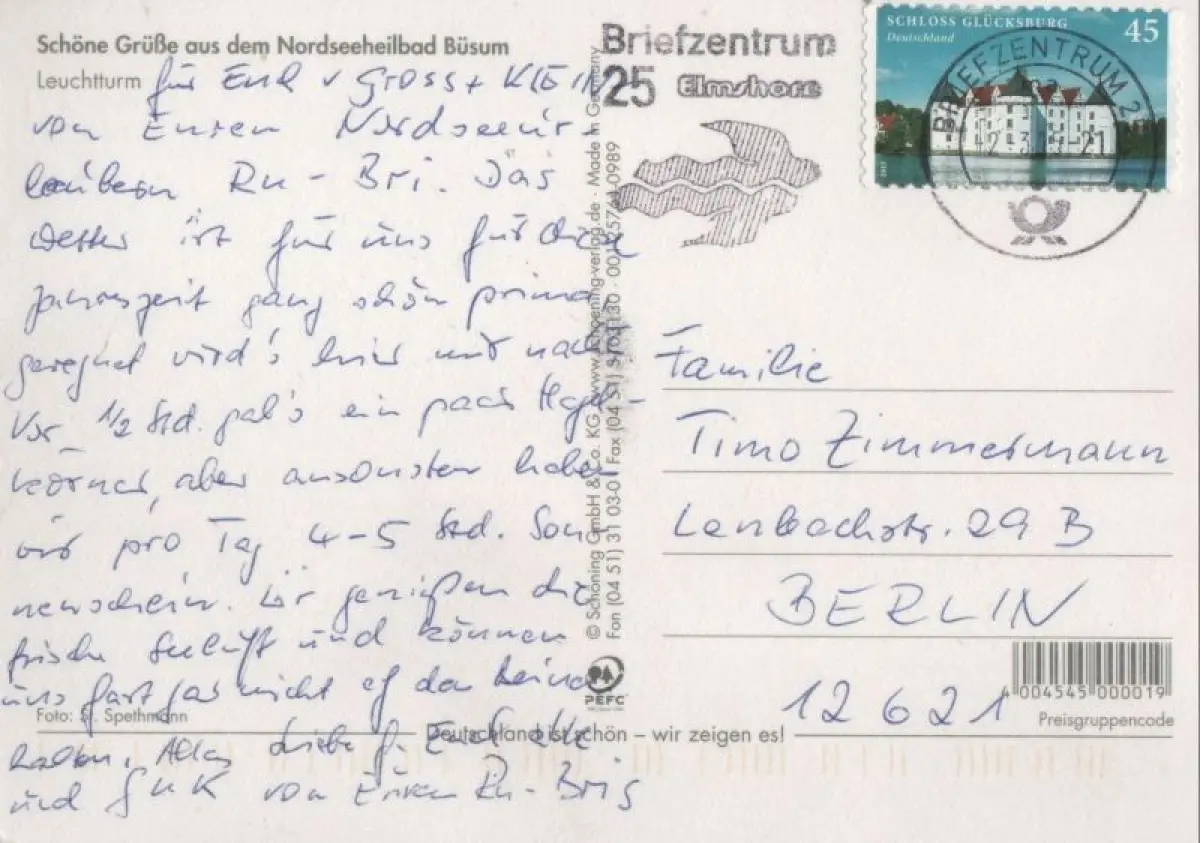 Schöne Grüße aus dem Nordseeheilbad Büsum
Leuchtturm
für Euch v Gross + KLEIN
von Euren Nordseeur-
laubern Ru - Bri. Das
Wetter ist für uns für diese
Jahreszeit ganz schön prima
geregnet wird's hier nur nachts
Vor 1/2 Std. gab's ein paar Hagel-
körner, aber ansonsten haben
wir pro Tag 4-5 Std. Son-
nenschein. Wir genießen die
frische Seeluft und können
uns fast gar nicht auf den Beinen
halten. Alles Liebe f. Euch alle
und von Euren Ru-Bris
Foto: Spethmann
Deutschland ist schön – wir zeigen es!
© Schöning GmbH & Co. KG · www.schoening-verlag.de · Made in Germany
Fon (04 51) 31 03-0 Fax (04 51)
PEFC
Briefzentrum
25 Elmshorn
SCHLOSS GLÜCKSBURG
Deutschland
45
BRIEFZENTRUM 2
Familie
Timo Zimmermann
Lenbachstr. 29 B
BERLIN
12621
4 004545 000019
Preisgruppencode